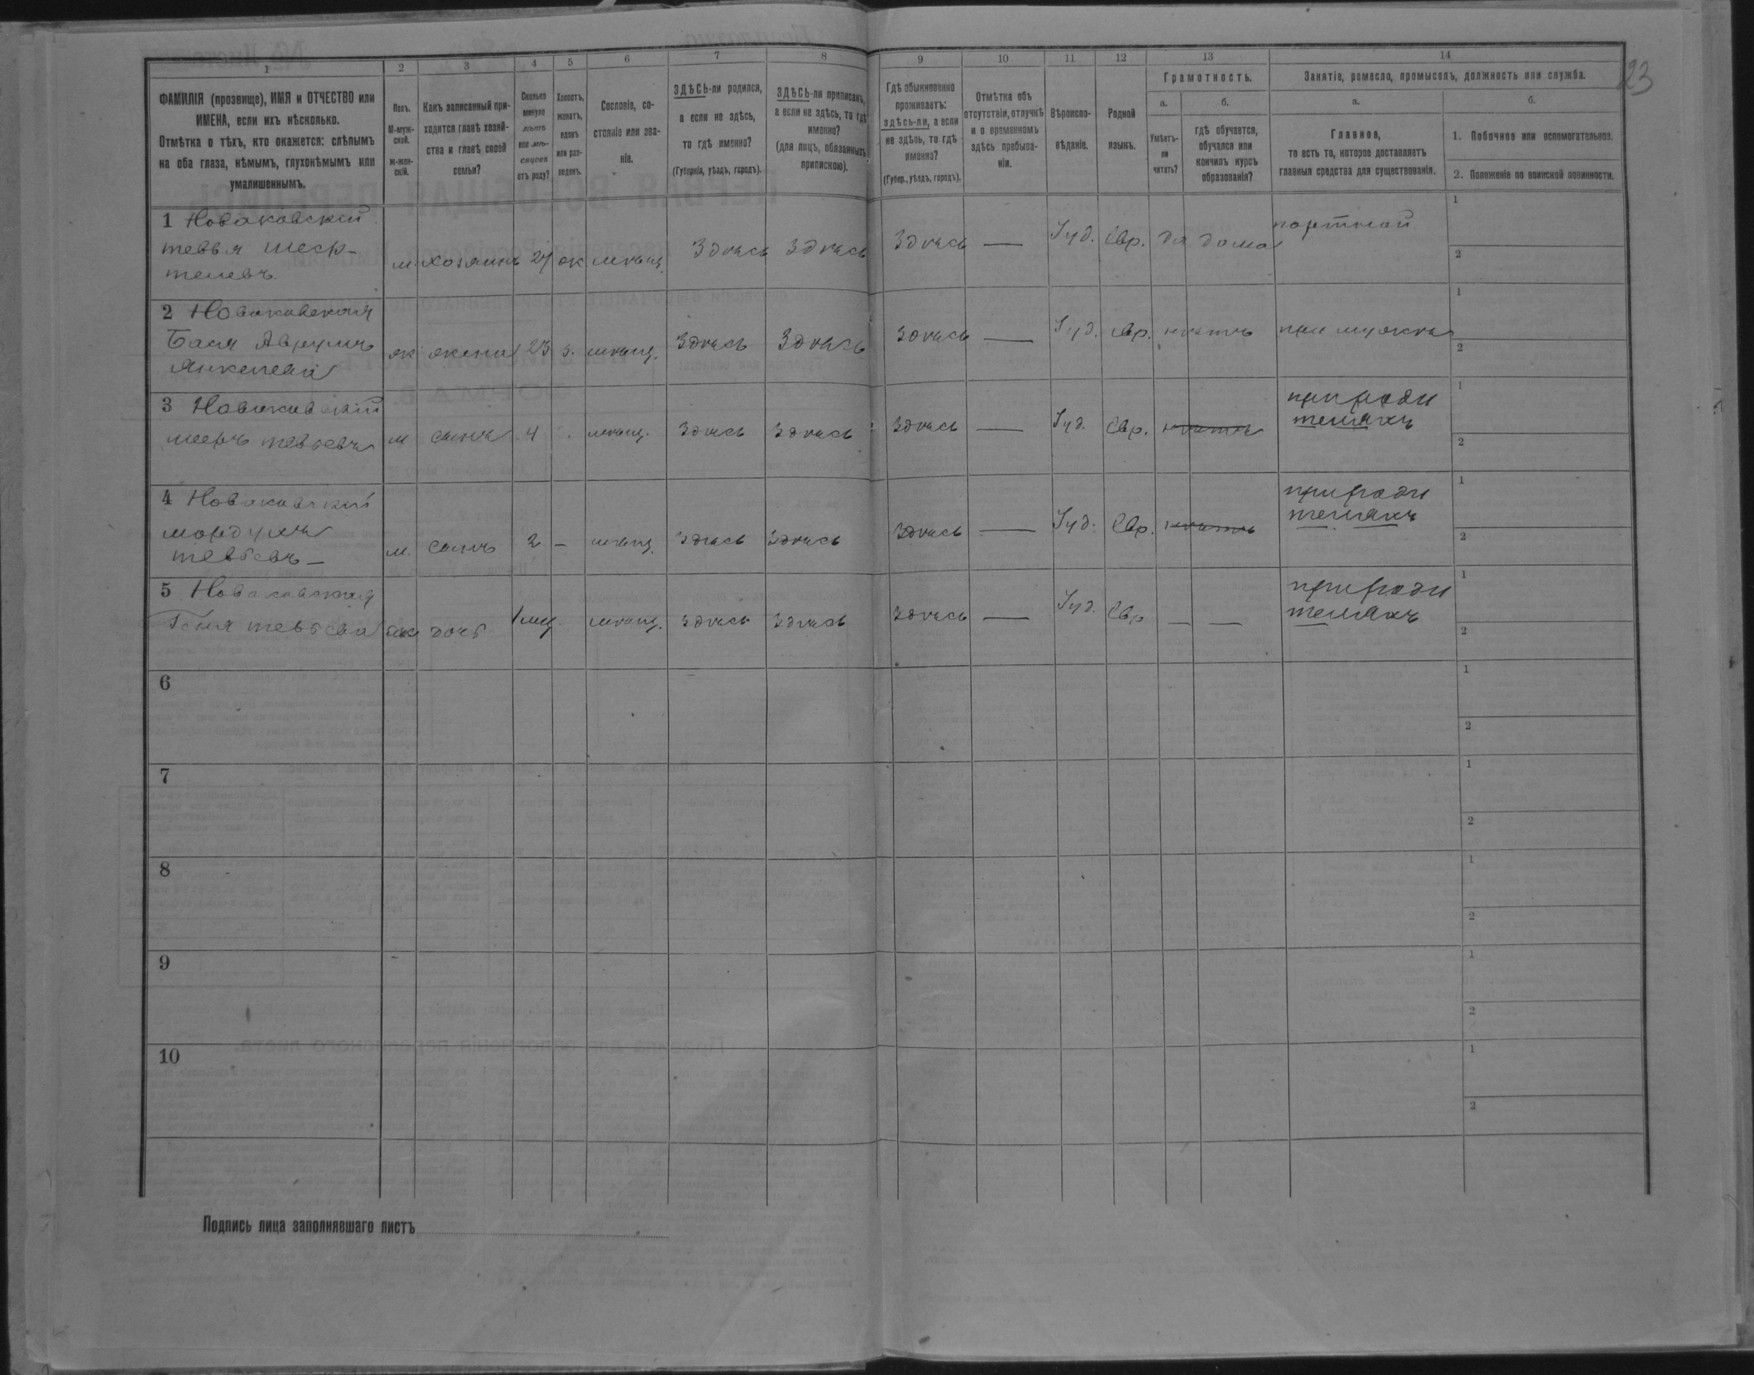 23
1 2 3 4 5 6 7 8 9 10 11 12 13 14
ФАМИЛІЯ (прозвище), ИМЯ и ОТЧЕСТВО или
ИМЕНА, если ихъ нѣсколько.
Отмѣтка о тѣхъ, кто окажется: слѣпымъ
на оба глаза, нѣмымъ, глухонѣмымъ или
умалишеннымъ.
Полъ.
М-муж-
ской.
ж-жен-
скій.
Какъ записанный при-
ходится главѣ хозяй-
ства и главѣ своей
семьи?
Сколько
минуло
лѣтъ
или мѣ-
сяцевъ
отъ роду?
Холостъ,
женатъ,
вдовъ
или раз-
веденъ.
Сословіе, со-
стояніе или зва-
ніе.
ЗДѢСЬ-ли родился,
а если не здѣсь,
то гдѣ именно?
(Губернія, уѣздъ, городъ).
ЗДѢСЬ-ли приписанъ,
а если не здѣсь, то гдѣ
именно?
(для лицъ, обязанныхъ
припискою).
Гдѣ обыкновенно
проживаетъ:
здѣсь-ли, а если
не здѣсь, то гдѣ
именно?
(Губер., уѣздъ, городъ).
Отмѣтка объ
отсутствіи, отлучкѣ
и о временномъ
здѣсь пребыва-
ніи.
Вѣроиспо-
вѣданіе.
Родной
языкъ.
Грамотность.
а.
Умѣетъ-
ли
читать?
б.
гдѣ обучается,
обучался или
кончилъ курсъ
образованія?
Занятіе, ремесло, промыселъ, должность или служба.
а.
Главное,
то есть то, которое доставляетъ
главныя средства для существованія.
б.
1. Побочное или вспомогательное.
2. Положеніе по воинской повинности.
1 Новаковскій
Тевья
м. хозяинъ 27 ж мѣщ. Здѣсь Здѣсь Здѣсь — Іуд. Евр. да дома портной
1
2
2 Новаковская
Бася
Янкелева
ж жена 23 з. мѣщ. Здѣсь Здѣсь Здѣсь — Іуд. Евр. нѣтъ при мужѣ
1
2
3 Новаковскій
Мееръ Тевьевъ
м сынъ 4 мѣщ. Здѣсь Здѣсь Здѣсь — Іуд. Евр. нѣтъ при роди
теляхъ
1
2
4 Новаковскій
Мордухъ
Тевьевъ —
м. сынъ 2 — мѣщ. Здѣсь Здѣсь Здѣсь — Іуд. Евр. нѣтъ при роди
теляхъ
1
2
5 Новаковская
Тевьева
жен дочь 1 мц мѣщ. Здѣсь Здѣсь Здѣсь — Іуд. Евр — — при роди
теляхъ
1
2
6
1
2
7
1
2
8
1
2
9
1
2
10
1
2
Подпись лица заполнявшаго листъ